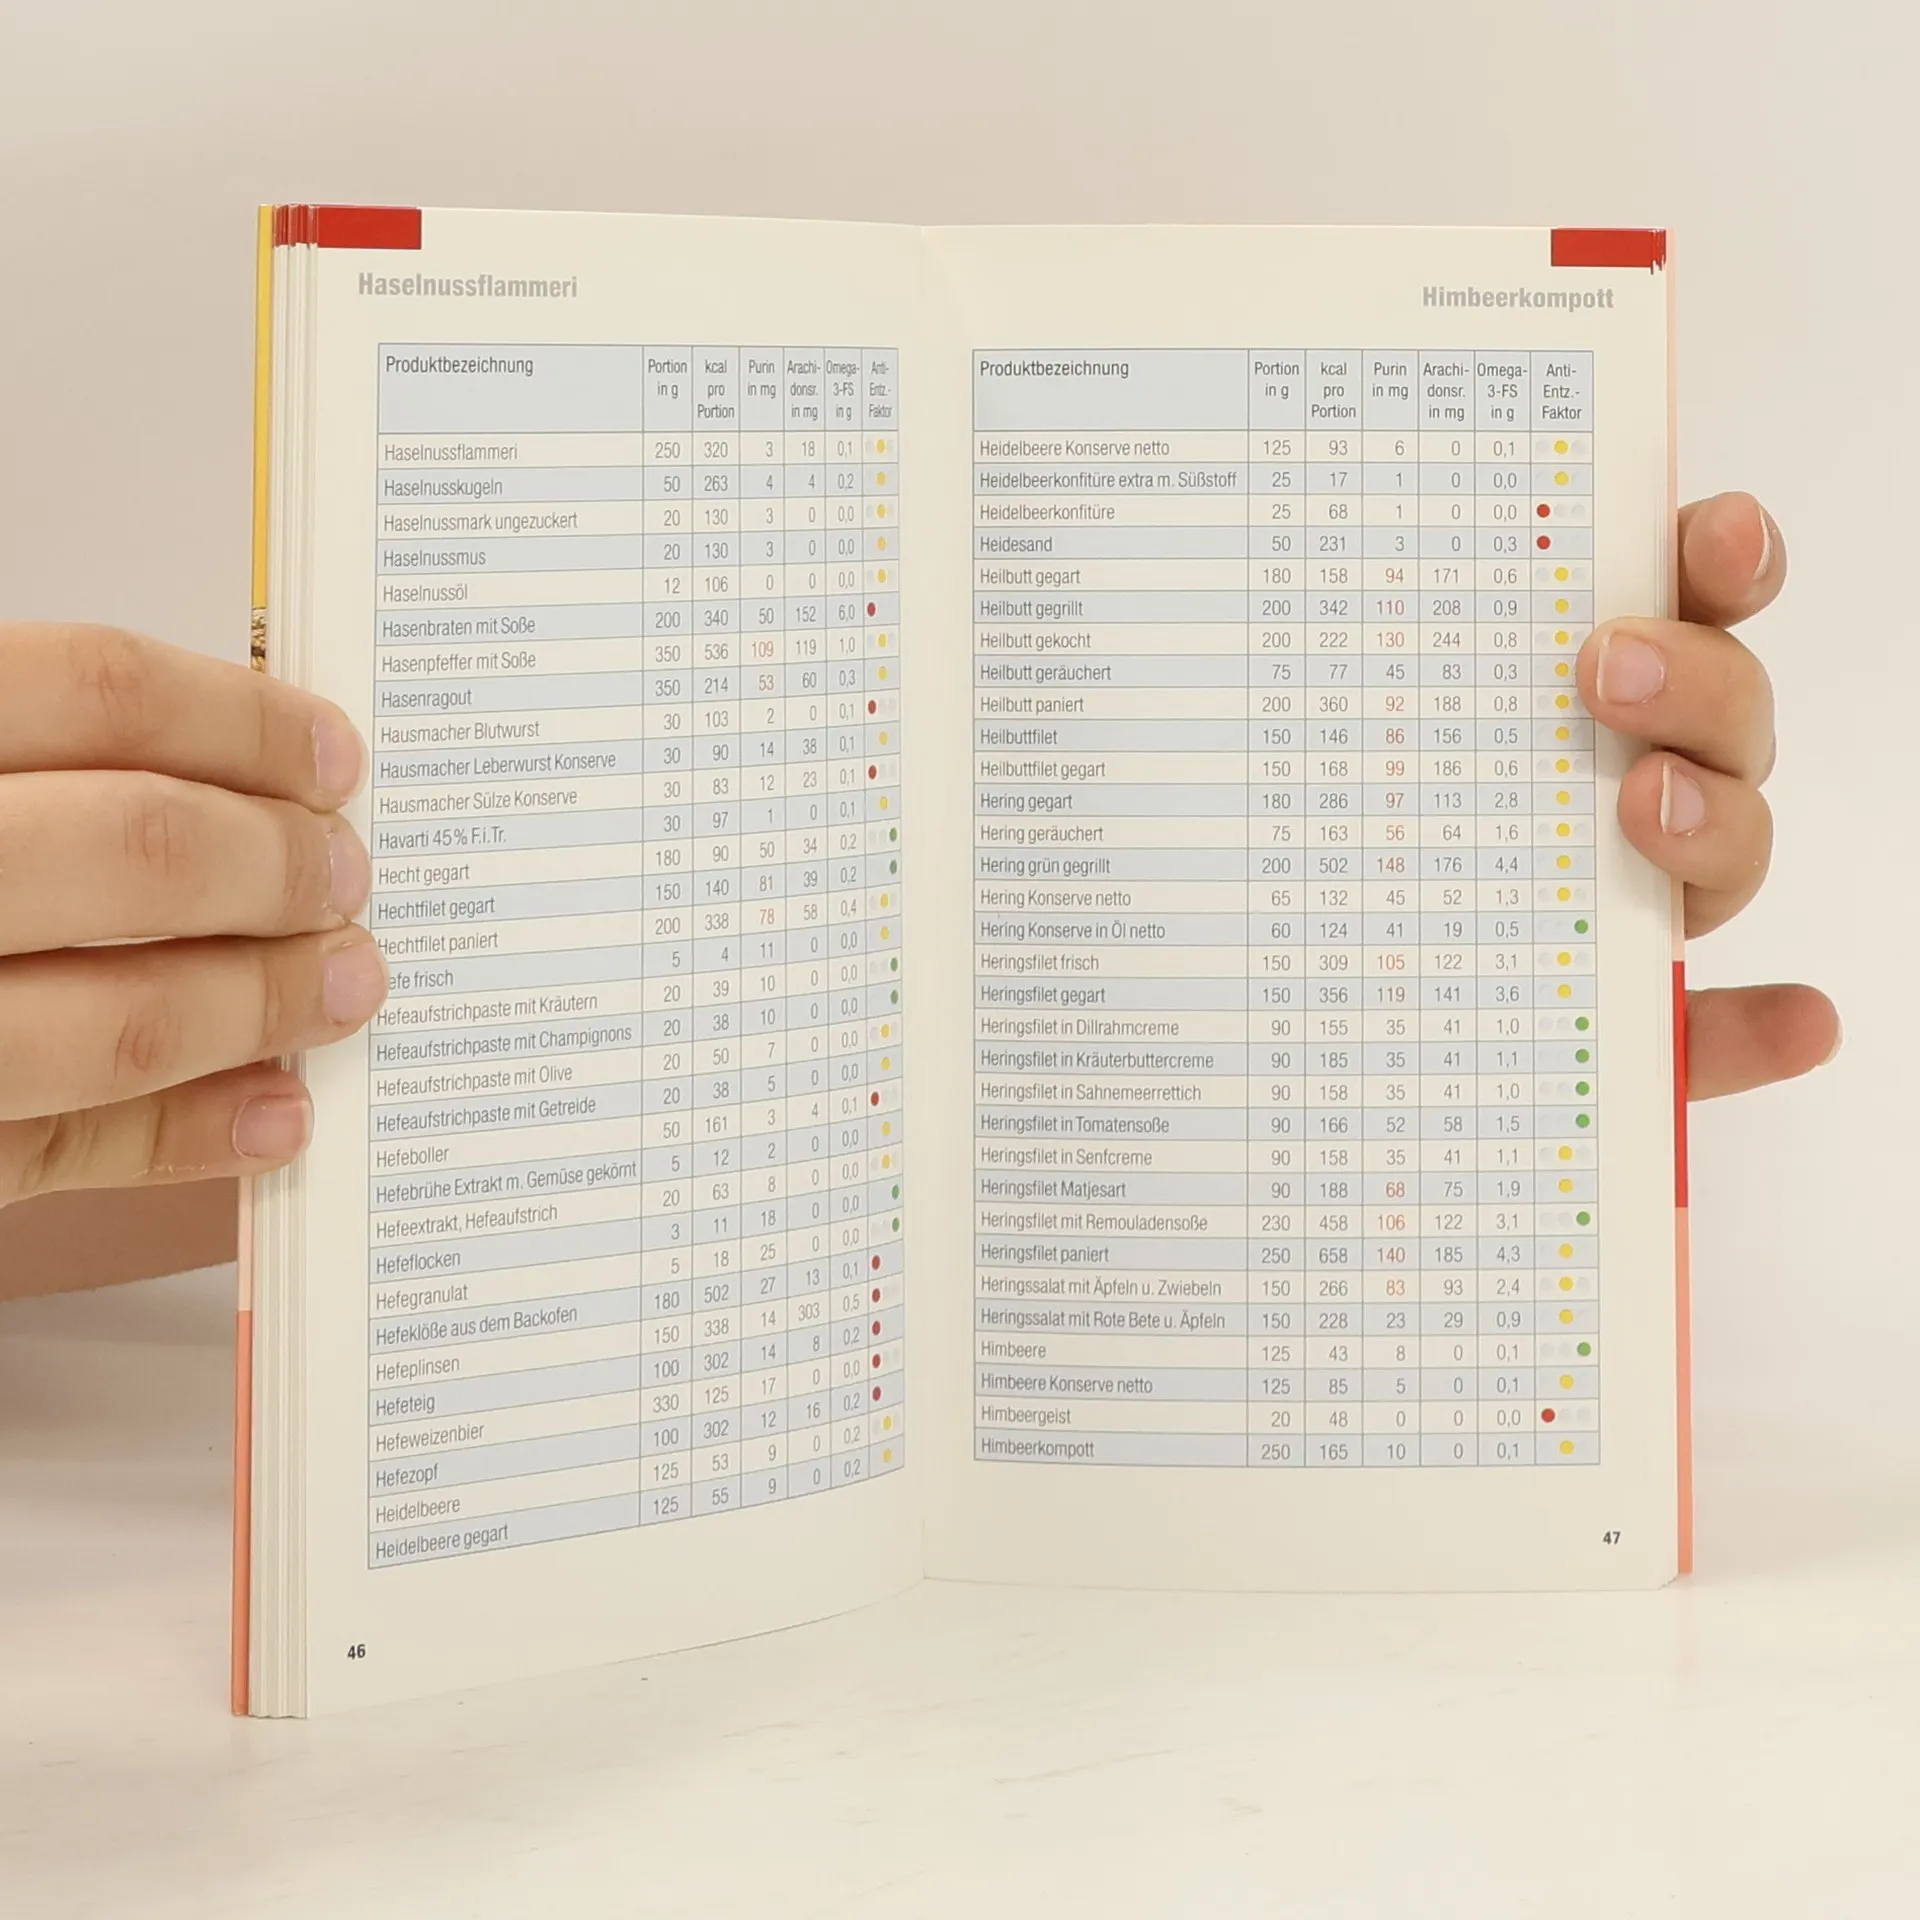 Haselnussflammeri
Produktbezeichnung Portion in g kcal pro Portion Purin in mg Arachi-donsr. in mg Omega-3-FS in g Anti-Entz.-Faktor
Haselnussflammeri 250 320 3 18 0,1
Haselnusskugeln 50 263 4 4 0,2
Haselnussmark ungezuckert 20 130 3 0 0,0
Haselnussmus 20 130 3 0 0,0
Haselnussöl 12 106 0 0 0,0
Hasenbraten mit Soße 200 340 50 152 6,0
Hasenpfeffer mit Soße 350 536 109 119 1,0
Hasenragout 350 214 53 60 0,3
Hausmacher Blutwurst 30 103 2 0 0,1
Hausmacher Leberwurst Konserve 30 90 14 38 0,1
Hausmacher Sülze Konserve 30 83 12 23 0,1
Havarti 45% F.i.Tr. 30 97 1 0 0,1
Hecht gegart 180 90 50 34 0,2
Hechtfilet gegart 150 140 81 39 0,2
Hechtfilet paniert 200 338 78 58 0,4
efe frisch 5 4 11 0 0,0
Hefeaufstrichpaste mit Kräutern 20 39 10 0 0,0
Hefeaufstrichpaste mit Champignons 20 38 10 0 0,0
Hefeaufstrichpaste mit Olive 20 50 7 0 0,0
Hefeaufstrichpaste mit Getreide 20 38 5 0 0,0
Hefeboller 50 161 3 4 0,1
Hefebrühe Extrakt m. Gemüse gekörnt 5 12 2 0 0,0
Hefeextrakt, Hefeaufstrich 20 63 8 0 0,0
Hefeflocken 3 11 18 0 0,0
Hefegranulat 5 18 25 0 0,0
Hefeklöße aus dem Backofen 180 502 27 13 0,1
Hefeplinsen 150 338 14 303 0,5
Hefeteig 100 302 14 8 0,2
Hefeweizenbier 330 125 17 0 0,0
Hefezopf 100 302 12 16 0,2
Heidelbeere 125 53 9 0 0,2
Heidelbeere gegart 125 55 9 0 0,2
46
Himbeerkompott
Produktbezeichnung Portion in g kcal pro Portion Purin in mg Arachi-donsr. in mg Omega-3-FS in g Anti-Entz.-Faktor
Heidelbeere Konserve netto 125 93 6 0 0,1
Heidelbeerkonfitüre extra m. Süßstoff 25 17 1 0 0,0
Heidelbeerkonfitüre 25 68 1 0 0,0
Heidesand 50 231 3 0 0,3
Heilbutt gegart 180 158 94 171 0,6
Heilbutt gegrillt 200 342 110 208 0,9
Heilbutt gekocht 200 222 130 244 0,8
Heilbutt geräuchert 75 77 45 83 0,3
Heilbutt paniert 200 360 92 188 0,8
Heilbuttfilet 150 146 86 156 0,5
Heilbuttfilet gegart 150 168 99 186 0,6
Hering gegart 180 286 97 113 2,8
Hering geräuchert 75 163 56 64 1,6
Hering grün gegrillt 200 502 148 176 4,4
Hering Konserve netto 65 132 45 52 1,3
Hering Konserve in Öl netto 60 124 41 19 0,5
Heringsfilet frisch 150 309 105 122 3,1
Heringsfilet gegart 150 356 119 141 3,6
Heringsfilet in Dillrahmcreme 90 155 35 41 1,0
Heringsfilet in Kräuterbuttercreme 90 185 35 41 1,1
Heringsfilet in Sahnemeerrettich 90 158 35 41 1,0
Heringsfilet in Tomatensoße 90 166 52 58 1,5
Heringsfilet in Senfcreme 90 158 35 41 1,1
Heringsfilet Matjesart 90 188 68 75 1,9
Heringsfilet mit Remouladensoße 230 458 106 122 3,1
Heringsfilet paniert 250 658 140 185 4,3
Heringssalat mit Äpfeln u. Zwiebeln 150 266 83 93 2,4
Heringssalat mit Rote Bete u. Äpfeln 150 228 23 29 0,9
Himbeere 125 43 8 0 0,1
Himbeere Konserve netto 125 85 5 0 0,1
Himbeergeist 20 48 0 0 0,0
Himbeerkompott 250 165 10 0 0,1
47